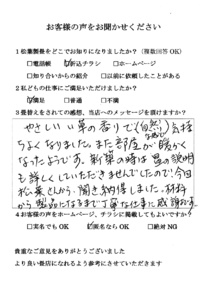 お客様の声をお聞かせください
1 松葉製畳をどこでお知りになりましたか？（複数回答OK）
□電話帳 ☑折込チラシ □ホームページ
□知り合いからの紹介 □以前に依頼したことがある
2 私どもの仕事にご満足いただけましたか？
☑満足 □普通 □不満
3 畳替えをされての感想、当店へのメッセージを頂けますか？
やさしい い草の香りで(自然)気持
ちよくなりました。また部屋が暖かく
なったようです。新築の時は畳の説明
も詳しくしていただきませんでしたので!今回
松葉さんから、聞き納得しました。材料
から製品になるまで丁寧な仕事に感謝
4 お客様の声をホームページ、チラシに掲載してもよいですか？
□実名でもOK ☑匿名ならOK □絶対NG
貴重なご意見をありがとうございました
より良い畳店になれるよう参考にさせていただきます